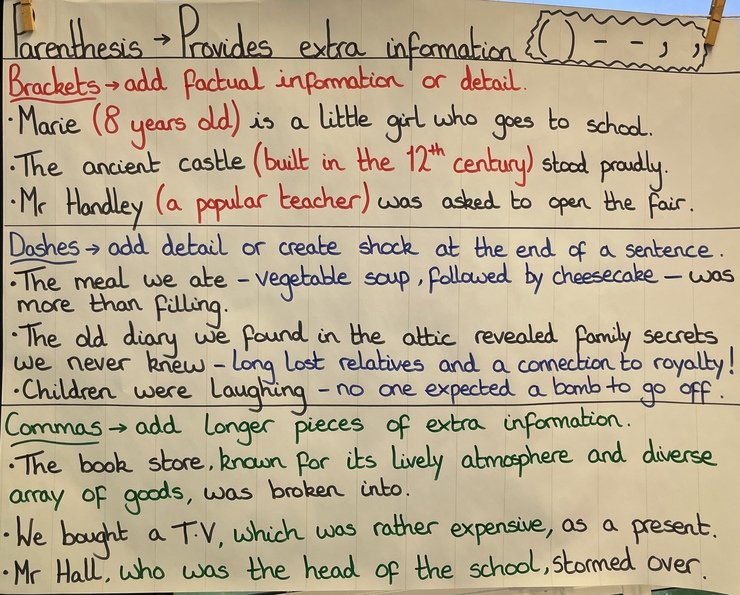 Parenthesis → Provides extra information ( ) - - , ,
Brackets → add factual information or detail.
• Marie (8 years old) is a little girl who goes to school.
• The ancient castle (built in the 12th century) stood proudly.
• Mr Handley (a popular teacher) was asked to open the fair.
Dashes → add detail or create shock at the end of a sentence.
• The meal we ate – vegetable soup, followed by cheesecake – was
more than filling.
• The old diary we found in the attic revealed family secrets
we never knew – long lost relatives and a connection to royalty!
• Children were laughing – no one expected a bomb to go off.
Commas → add longer pieces of extra information.
• The book store, known for its lively atmosphere and diverse
array of goods, was broken into.
• We bought a T.V, which was rather expensive, as a present.
• Mr Hall, who was the head of the school, stormed over.